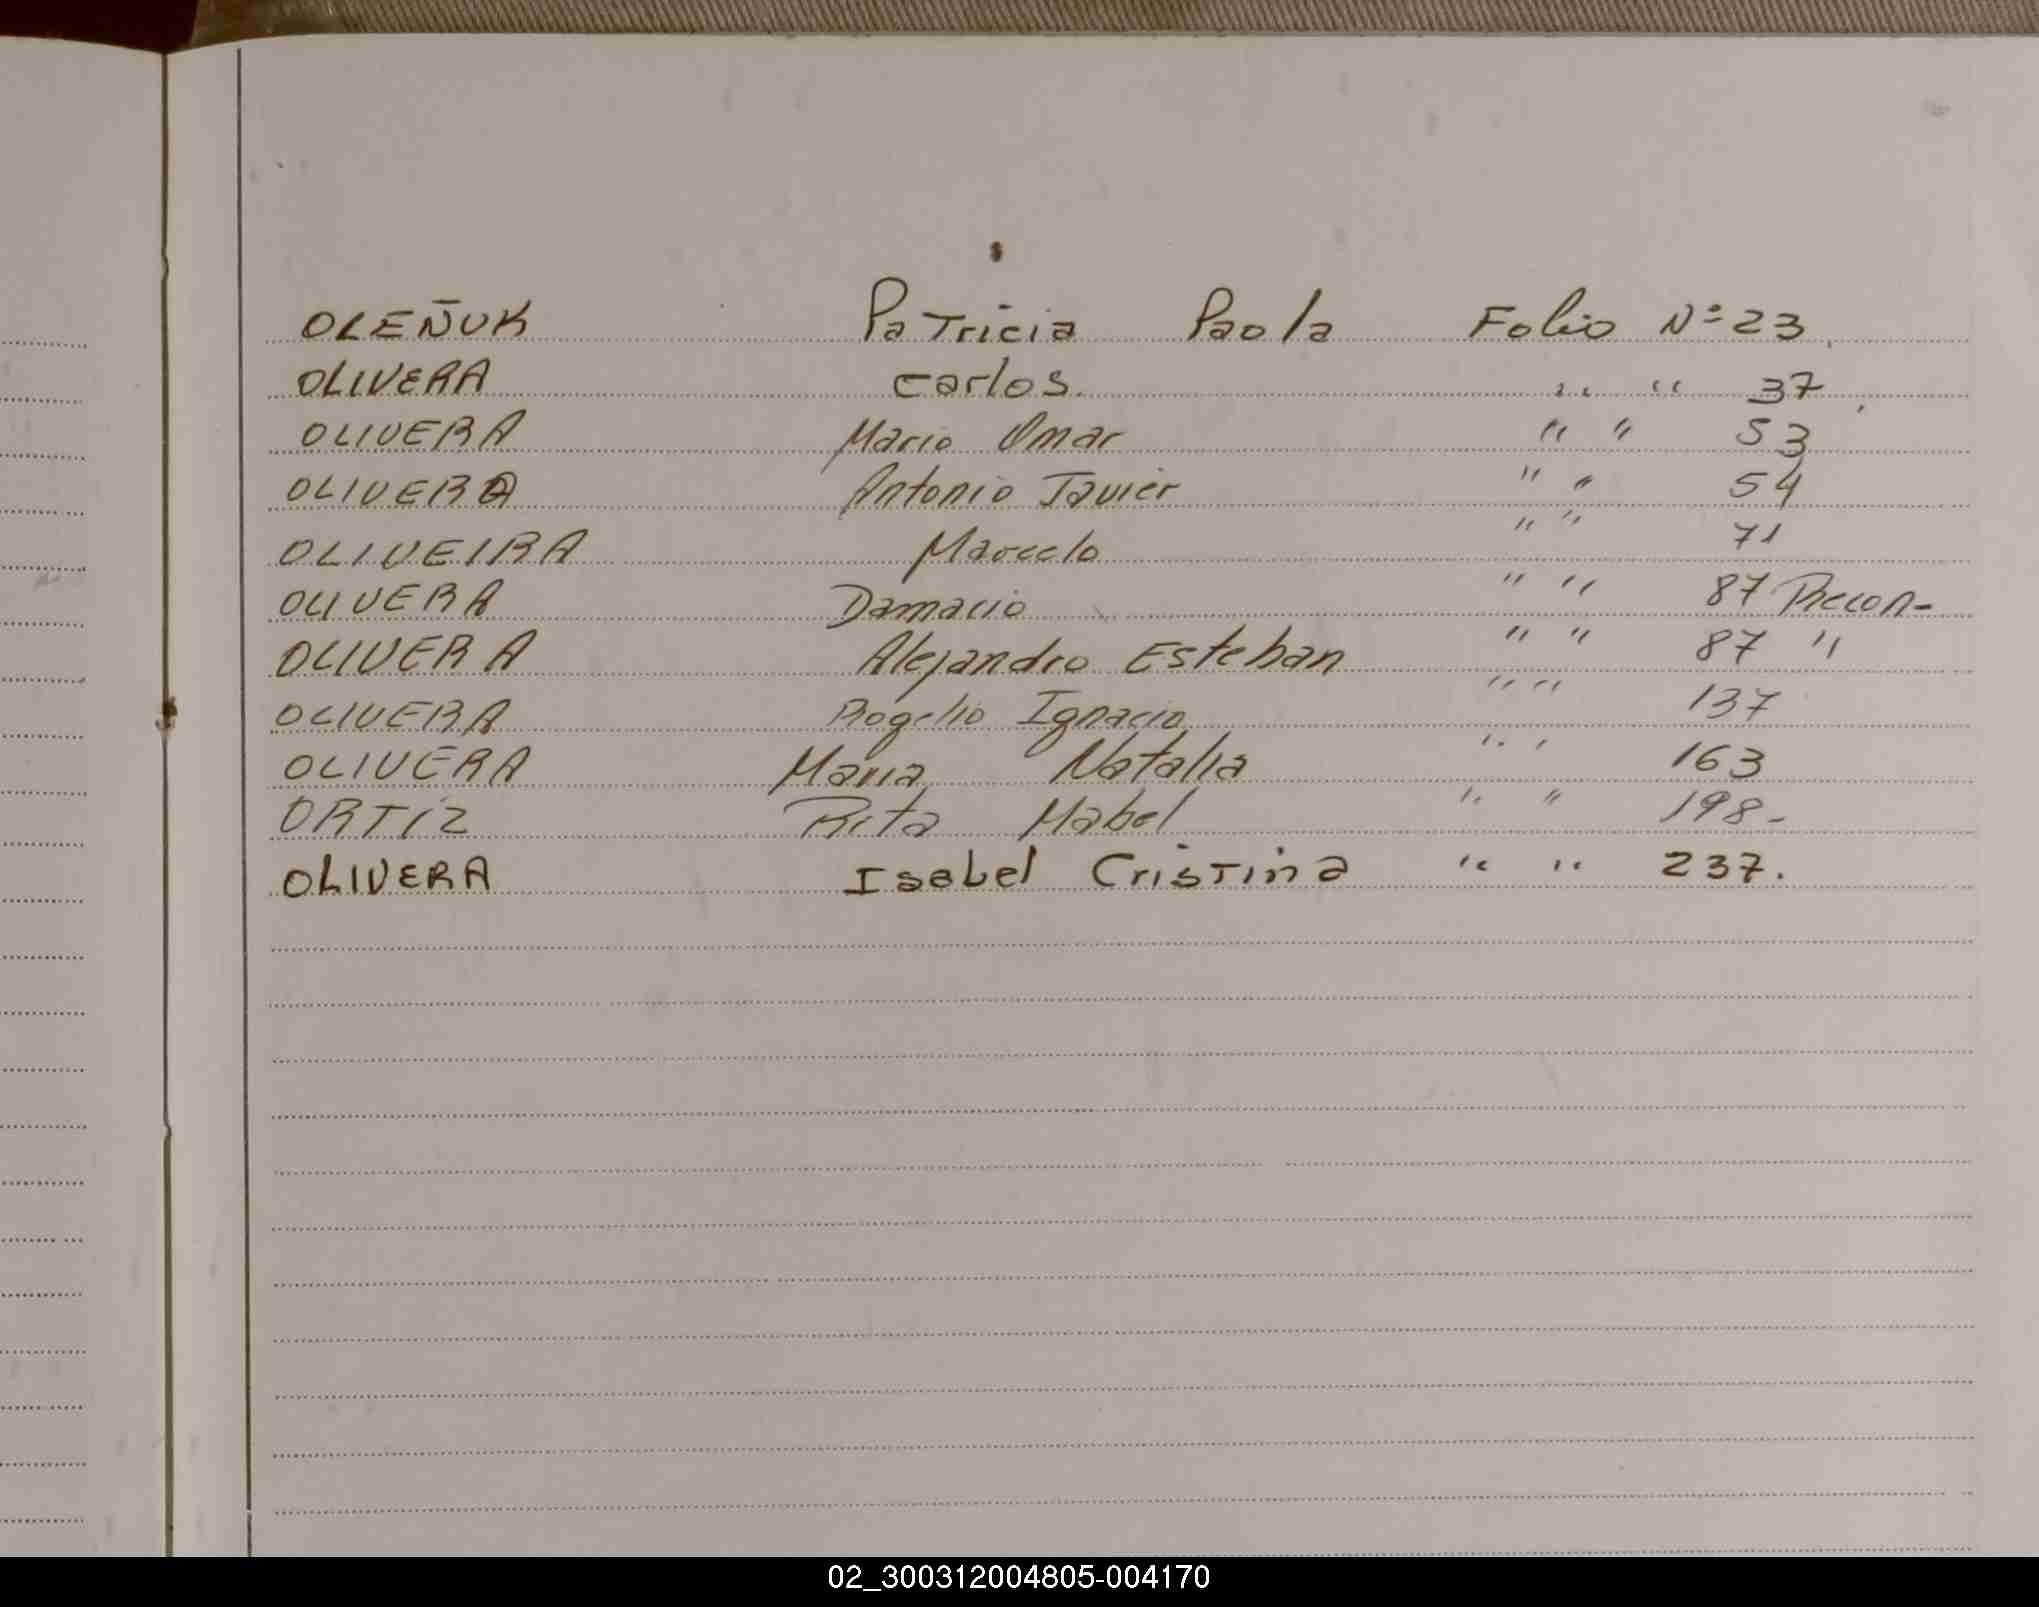 OLEÑUK Patricia Paola Folio Nº 23.
OLIVERA Carlos. " " 37.
OLIVERA Mario Omar " " 53
OLIVERA Antonio Javier " " 54
OLIVEIRA Marcelo " " 71
OLIVERA Damacio " " 87 Recon-
OLIVERA Alejandro Esteban " " 87 "
OLIVERA Rogelio Ignacio " " 137
OLIVERA Maria Natalia " " 163
ORTíz Rita Mabel " " 198-
OLIVERA Isabel Cristina " " 237.
02_300312004805-004170